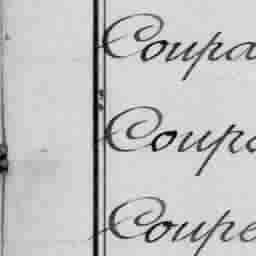 Coupa
Coupa
Coupe